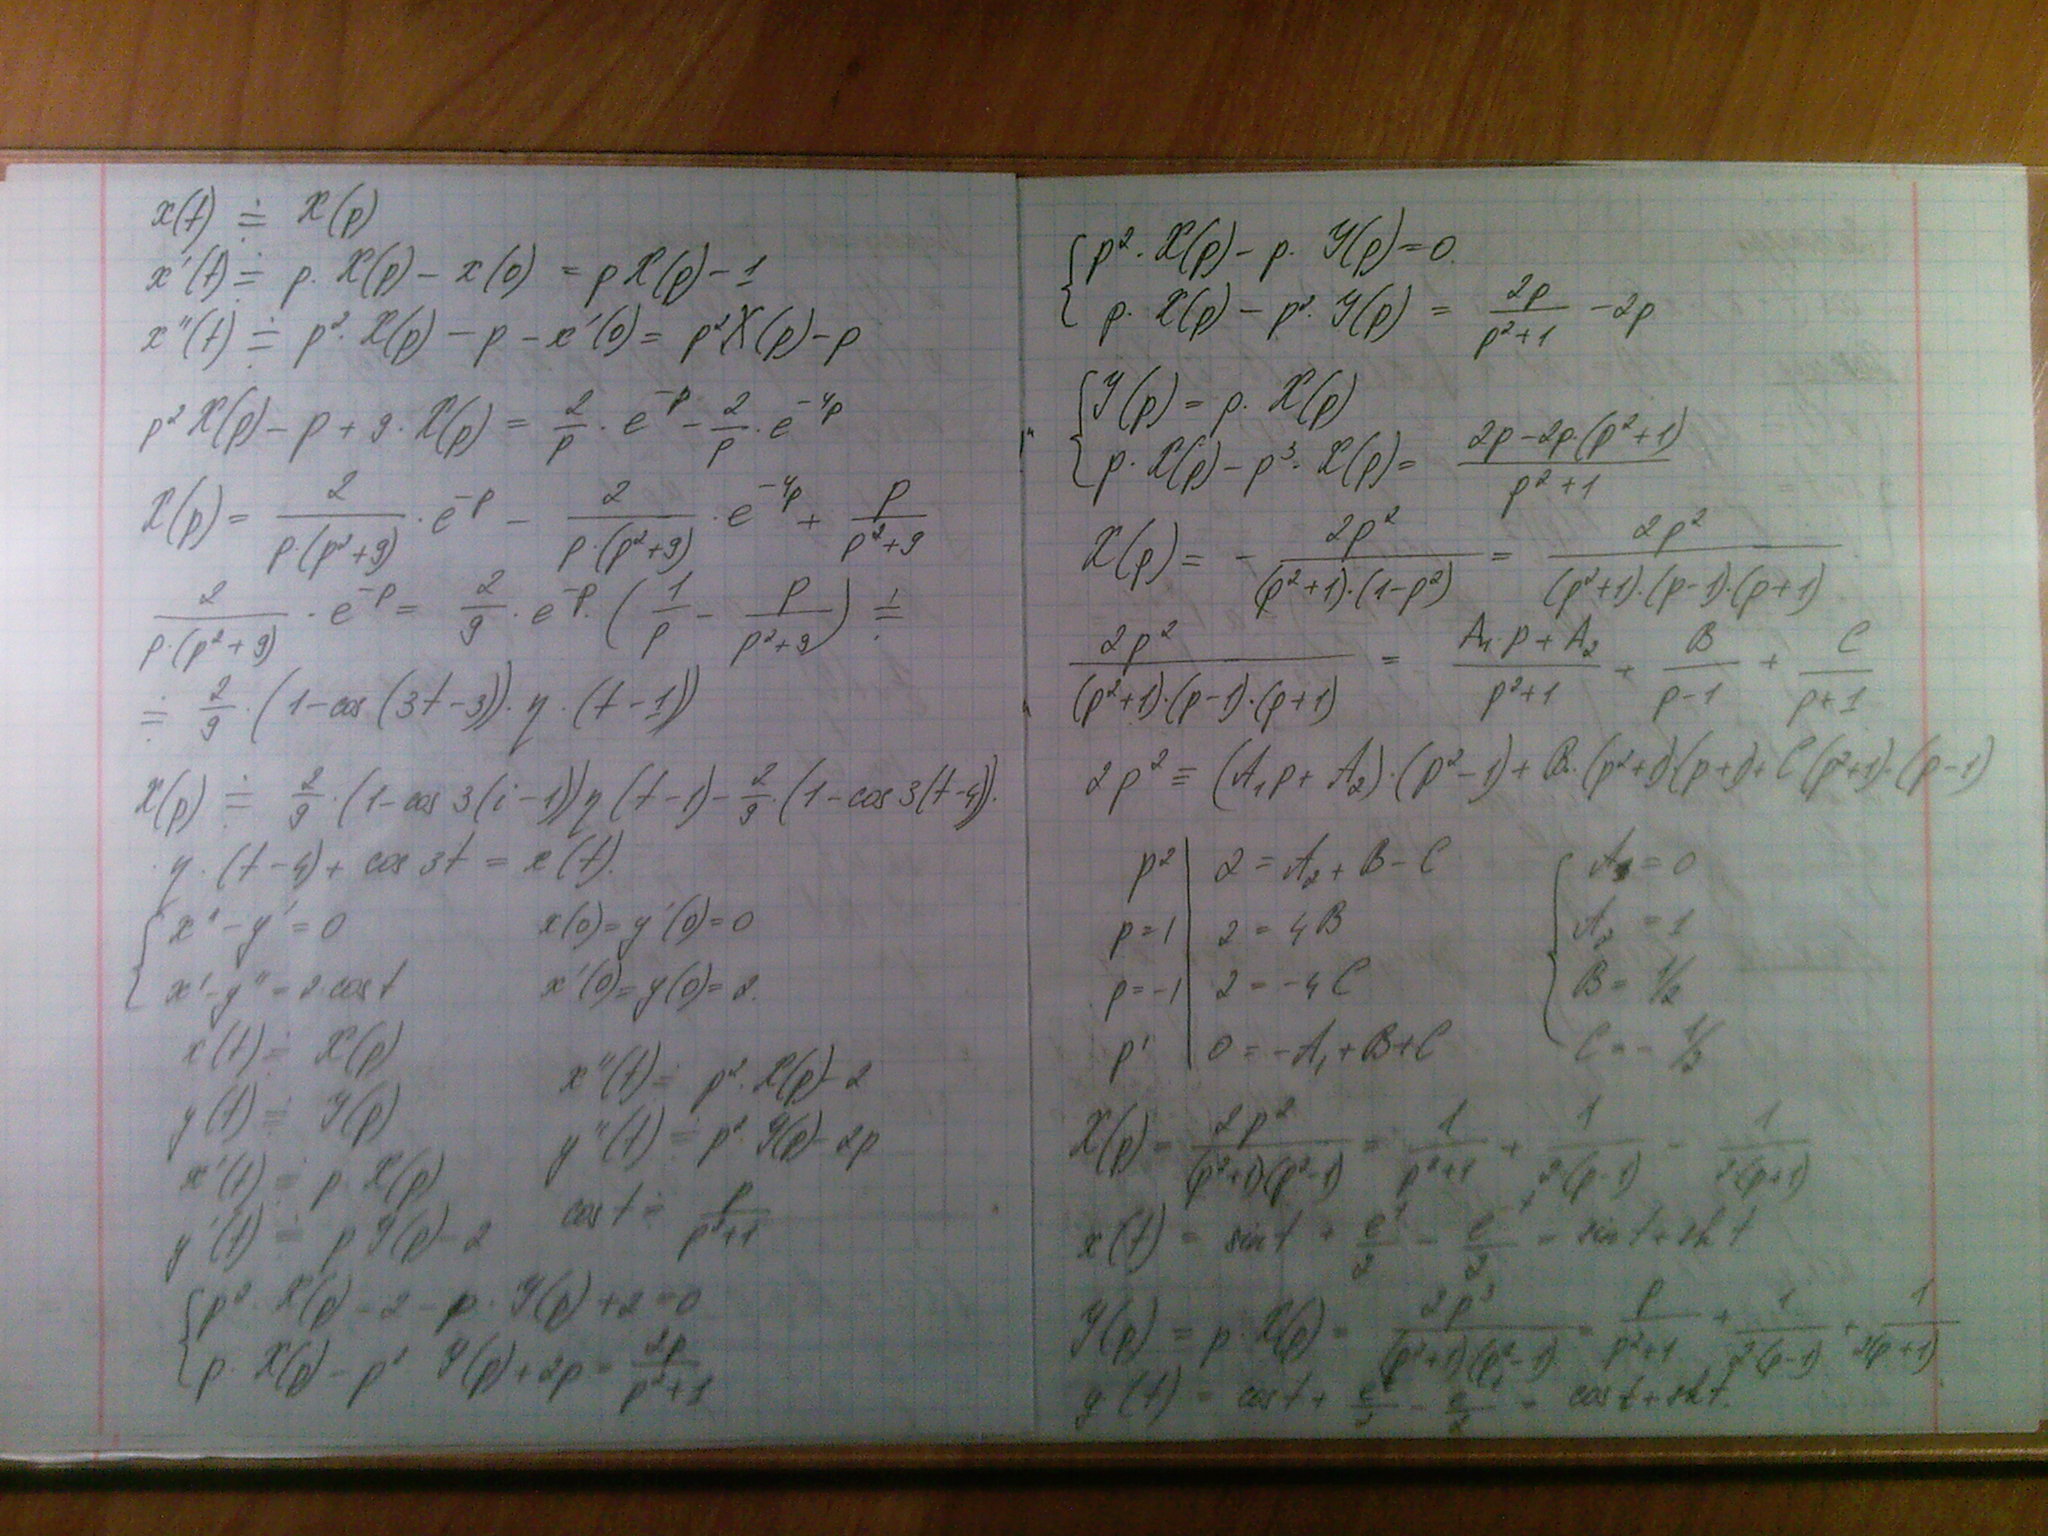 x(t) ≑ X(p)
x'(t) ≑ p · X(p) − x(0) = pX(p) − 1
x''(t) ≑ p² · X(p) − p − x'(0) = p²X(p) − p
p²X(p) − p + 9 · X(p) = 2/p · e^{−p} − 2/p · e^{−4p}
X(p) = 2/(p·(p²+9)) · e^{−p} − 2/(p·(p²+9)) · e^{−4p} + p/(p²+9)
2/(p·(p²+9)) · e^{−p} = 2/9 · e^{−p} · (1/p − p/(p²+9)) ≑
≑ 2/9 · (1−cos(3t−3)) · η · (t−1))
X(p) ≑ 2/9 · (1−cos 3(t−1)) η (t−1) − 2/9 · (1−cos 3(t−4)) ·
· η · (t−4) + cos 3t = x(t).
{ x'' − y' = 0 x(0) = y'(0) = 0
x' − y'' = 2 cos t x'(0) = y(0) = 2.
x(t) ≑ X(p)
y(t) ≑ Y(p)
x'(t) ≑ p · X(p)
y'(t) ≑ p Y(p) − 2
x''(t) ≑ p² · X(p) − 2
y''(t) ≑ p² · Y(p) − 2p
cos t ≑ p/(p²+1)
{ p² · X(p) − 2 − p · Y(p) + 2 = 0
p · X(p) − p² Y(p) + 2p = 2p/(p²+1)
{ p² · X(p) − p · Y(p) = 0.
p · X(p) − p² · Y(p) = 2p/(p²+1) − 2p
{ Y(p) = p · X(p)
p · X(p) − p³ · X(p) = (2p−2p·(p²+1))/(p²+1)
X(p) = − 2p²/((p²+1)·(1−p²)) = 2p²/((p²+1)·(p−1)·(p+1))
2p²/((p²+1)·(p−1)·(p+1)) = (A₁·p + A₂)/(p²+1) + B/(p−1) + C/(p+1)
2p² ≡ (A₁p + A₂)·(p²−1) + B·(p²+1)(p+1) + C(p²+1)·(p−1)
p² | 2 = A₂ + B − C
p=1 | 2 = 4B
p=−1 | 2 = −4C
p¹ | 0 = −A₁ + B + C
{ A₁ = 0
A₂ = 1
B = 1/2
C = − 1/2
X(p) = 2p²/((p²+1)·(p²−1)) = 1/(p²+1) + 1/(2(p−1)) − 1/(2(p+1))
x(t) = sin t + e^{t}/2 − e^{-t}/2 = sin t + sh t
Y(p) = p · X(p) = 2p³/((p²+1)·(p²−1)) = p/(p²+1) + 1/(2(p−1)) + 1/(2(p+1))
y(t) = cos t + e^{t}/2 − e^{-t}/2 = cos t + sh t.